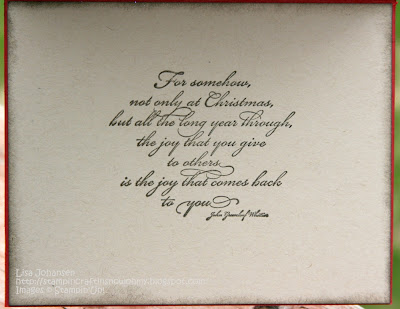 For somehow,
not only at Christmas,
but all the long year through,
the joy that you give
to others
is the joy that comes back
to you
John Greenleaf Whittier
Lisa Johansen
Images © Stampin' Up!